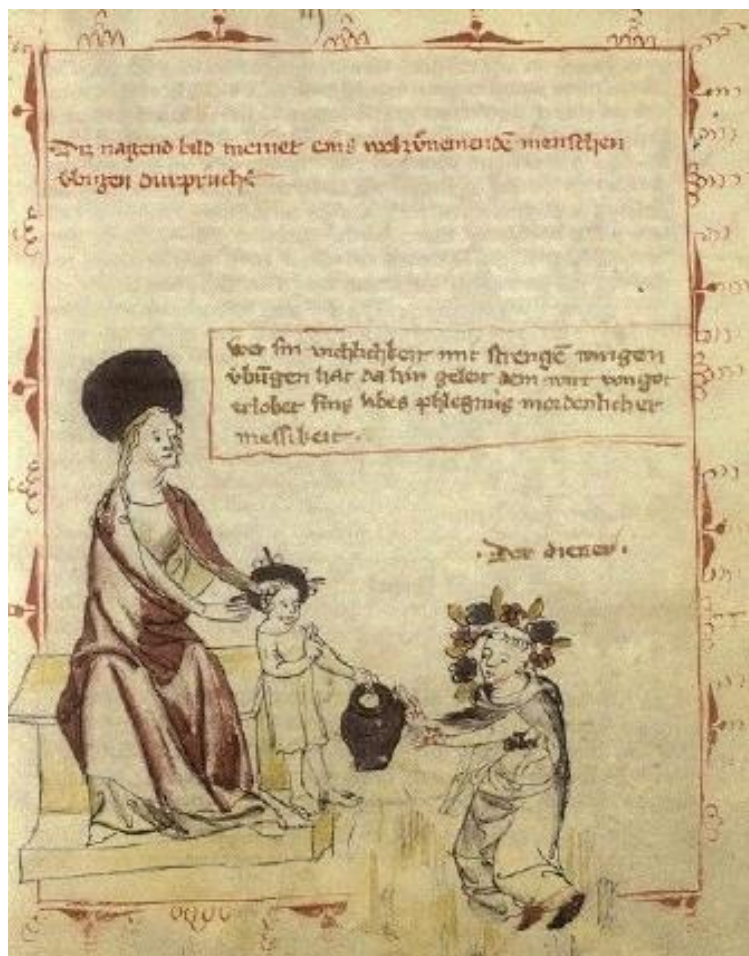 Diz nagend bild meinet eins wolzůnemendē menschen
v̊bigen durpruch
wer sin vichlichkeit mit strengē
v̊bůgen hat da hin geleit dem wirt von got
erlobet sins libes phlegnis in ordenlicher
messikeit.
· Der diener ·